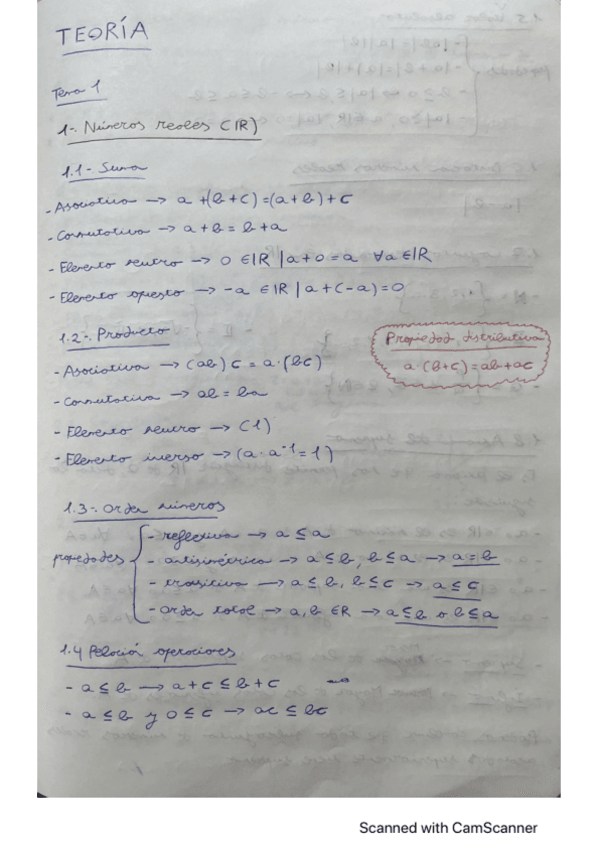 TEORÍA
Tema 1
1-. Números reales (IR)
1.1-. Suma
- Asociativa → a+(b+c)=(a+b)+c
- Conmutativa → a+b=b+a
- Elemento neutro → 0 ∈ IR | a+0=a ∀a∈IR
- Elemento opuesto → -a ∈ IR | a+(-a)=0
1.2-. Producto
Propiedad distributiva
a·(b+c)=ab+ac
- Asociativa → (ab)c = a·(bc)
- Conmutativa → ab=ba
- Elemento neutro → (1)
- Elemento inverso → (a·a⁻¹=1)
1.3-. Orden números
propiedades
- reflexiva → a≤a
- antisimétrica → a≤b, b≤a → a=b
- transitiva → a≤b, b≤c → a≤c
- orden total → a,b ∈R → a≤b o b≤a
1.4 Relación operaciones
- a≤b → a+c≤b+c
- a≤b y 0≤c → ac≤bc
Scanned with CamScanner